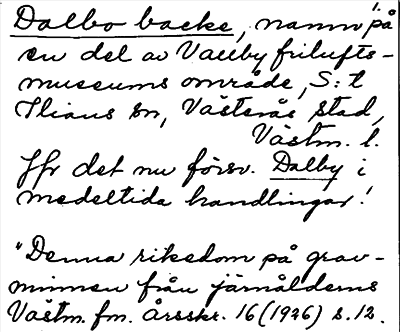 Dalbo backe, namn på
en del av Vallby frilufts-
museums område, S:t
Ilians sn, Västerås stad,
Västm. l.
Jfr det nu försv. Dalby i
medeltida handlingar!
"Denna rikedom på grav-
minnen från järnålderns
Västm. fm. Årsskr. 16 (1926) s. 12.